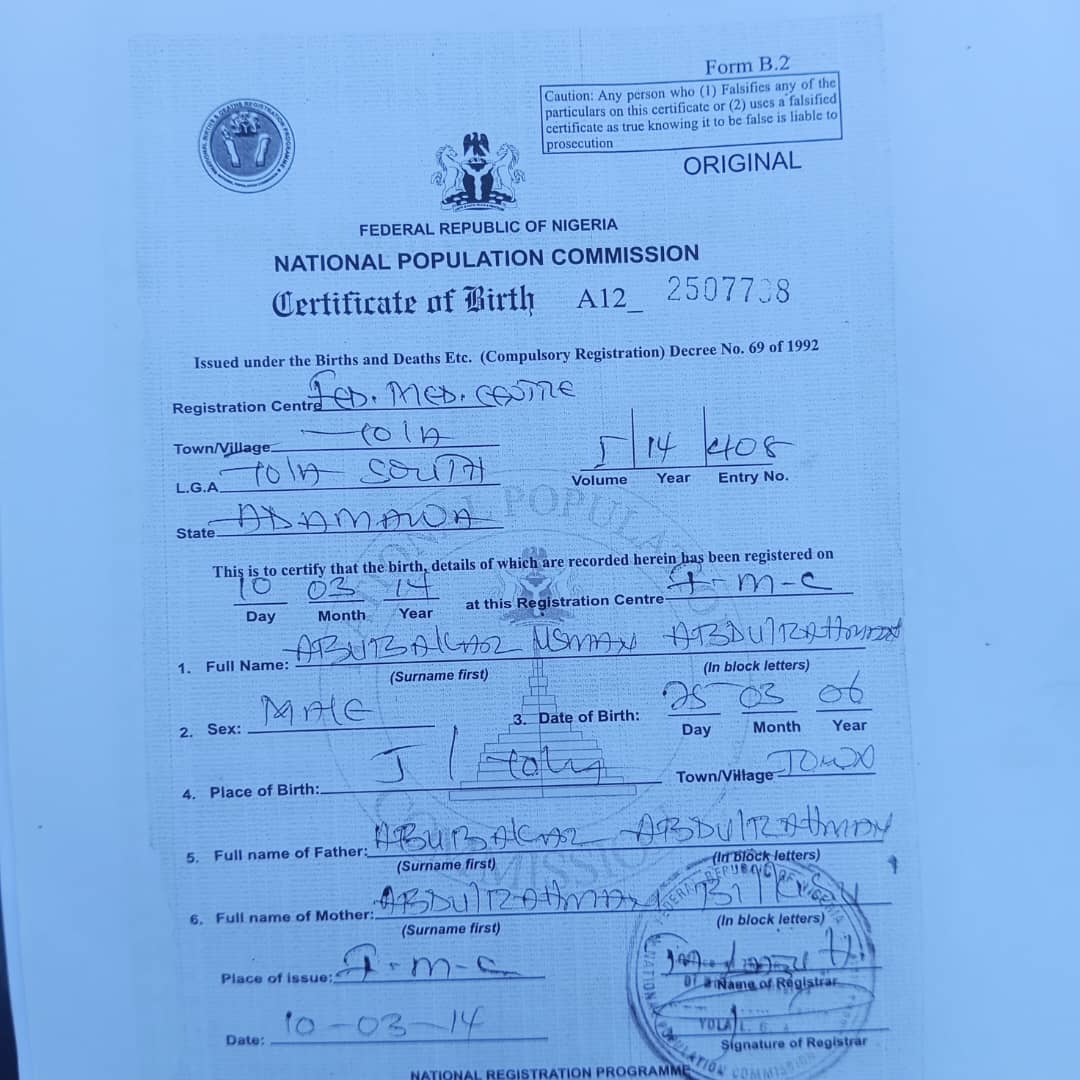 Form B.2
Caution: Any person who (1) Falsifies any of the
particulars on this certificate or (2) uses a falsified
certificate as true knowing it to be false is liable to
prosecution
ORIGINAL
FEDERAL REPUBLIC OF NIGERIA
NATIONAL POPULATION COMMISSION
Certificate of Birth A12_ 2507738
Issued under the Births and Deaths Etc. (Compulsory Registration) Decree No. 69 of 1992
Registration Centre FED. MED. CENTRE
Town/Village YOLA
L.G.A. YOLA SOUTH
5 14 408
Volume Year Entry No.
State ADAMAWA
This is to certify that the birth, details of which are recorded herein has been registered on
10 03 14 at this Registration Centre F-M-C
Day Month Year
1. Full Name: ABUBAKAR USMAN ABDULRAHMAN
(Surname first) (In block letters)
2. Sex: MALE 3. Date of Birth: 25 03 06
Day Month Year
4. Place of Birth: J/Yola Town/Village TOWN
5. Full name of Father: ABUBAKAR ABDULRAHMAN
(Surname first) (In block letters)
6. Full name of Mother: ABDULRAHMAN BILKISU
(Surname first) (In block letters)
Place of issue: F-M-C
Name of Registrar
Date: 10-03-14
YOLA
Signature of Registrar
NATIONAL REGISTRATION PROGRAMME